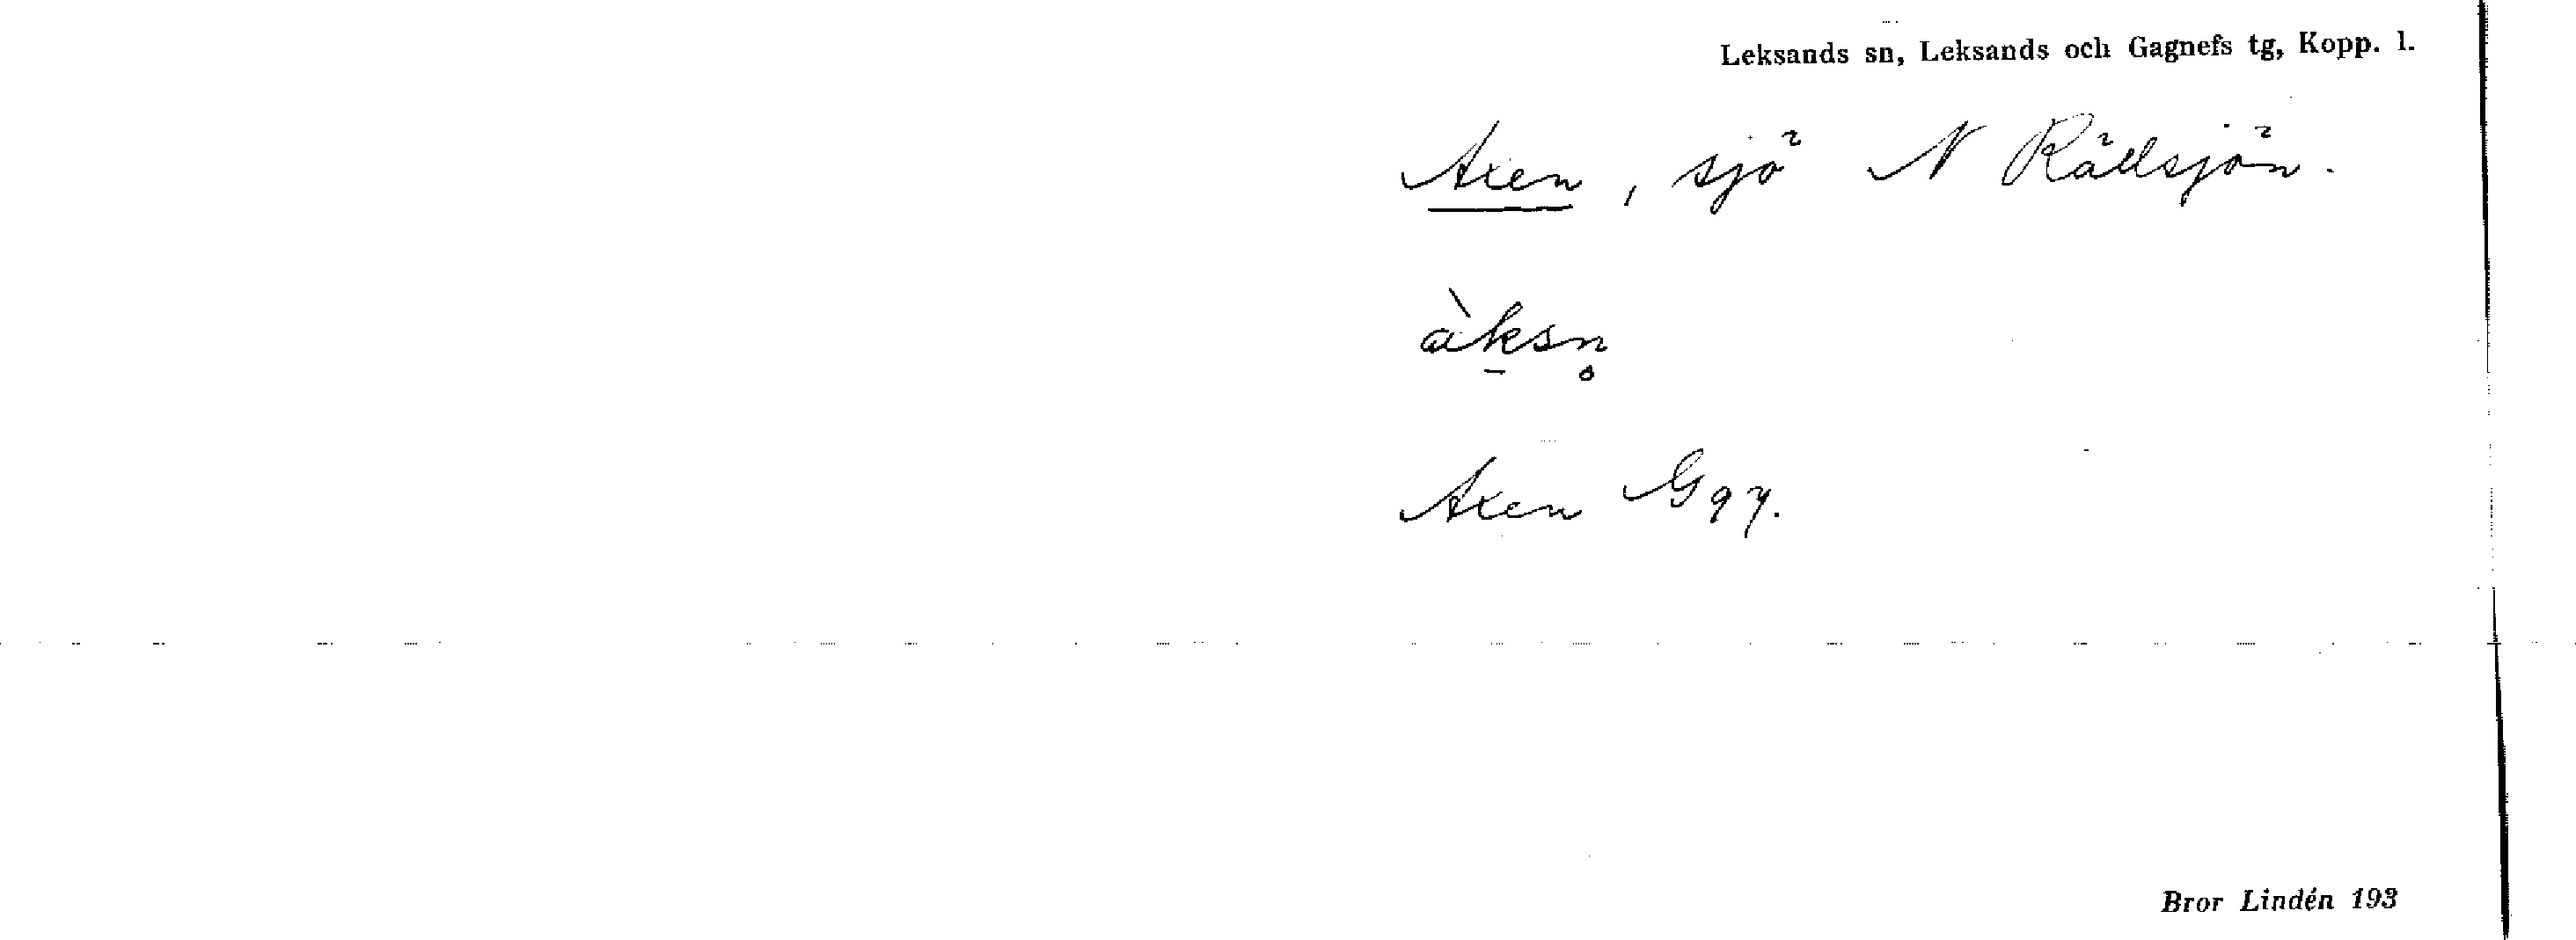 Leksands sn, Leksands och Gagnefs tg, Kopp. l.
Axen, sjö N Rällsjön.
àk̠sn̥
Axen G 97.
Bror Lindén 193